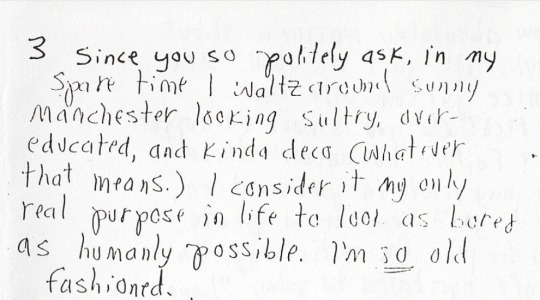 3 Since you so politely ask, in my
spare time I waltz around sunny
Manchester looking sultry, over-
educated, and kinda deco (whatever
that means.) I consider it my only
real purpose in life to look as bored
as humanly possible. I'm so old
fashioned.